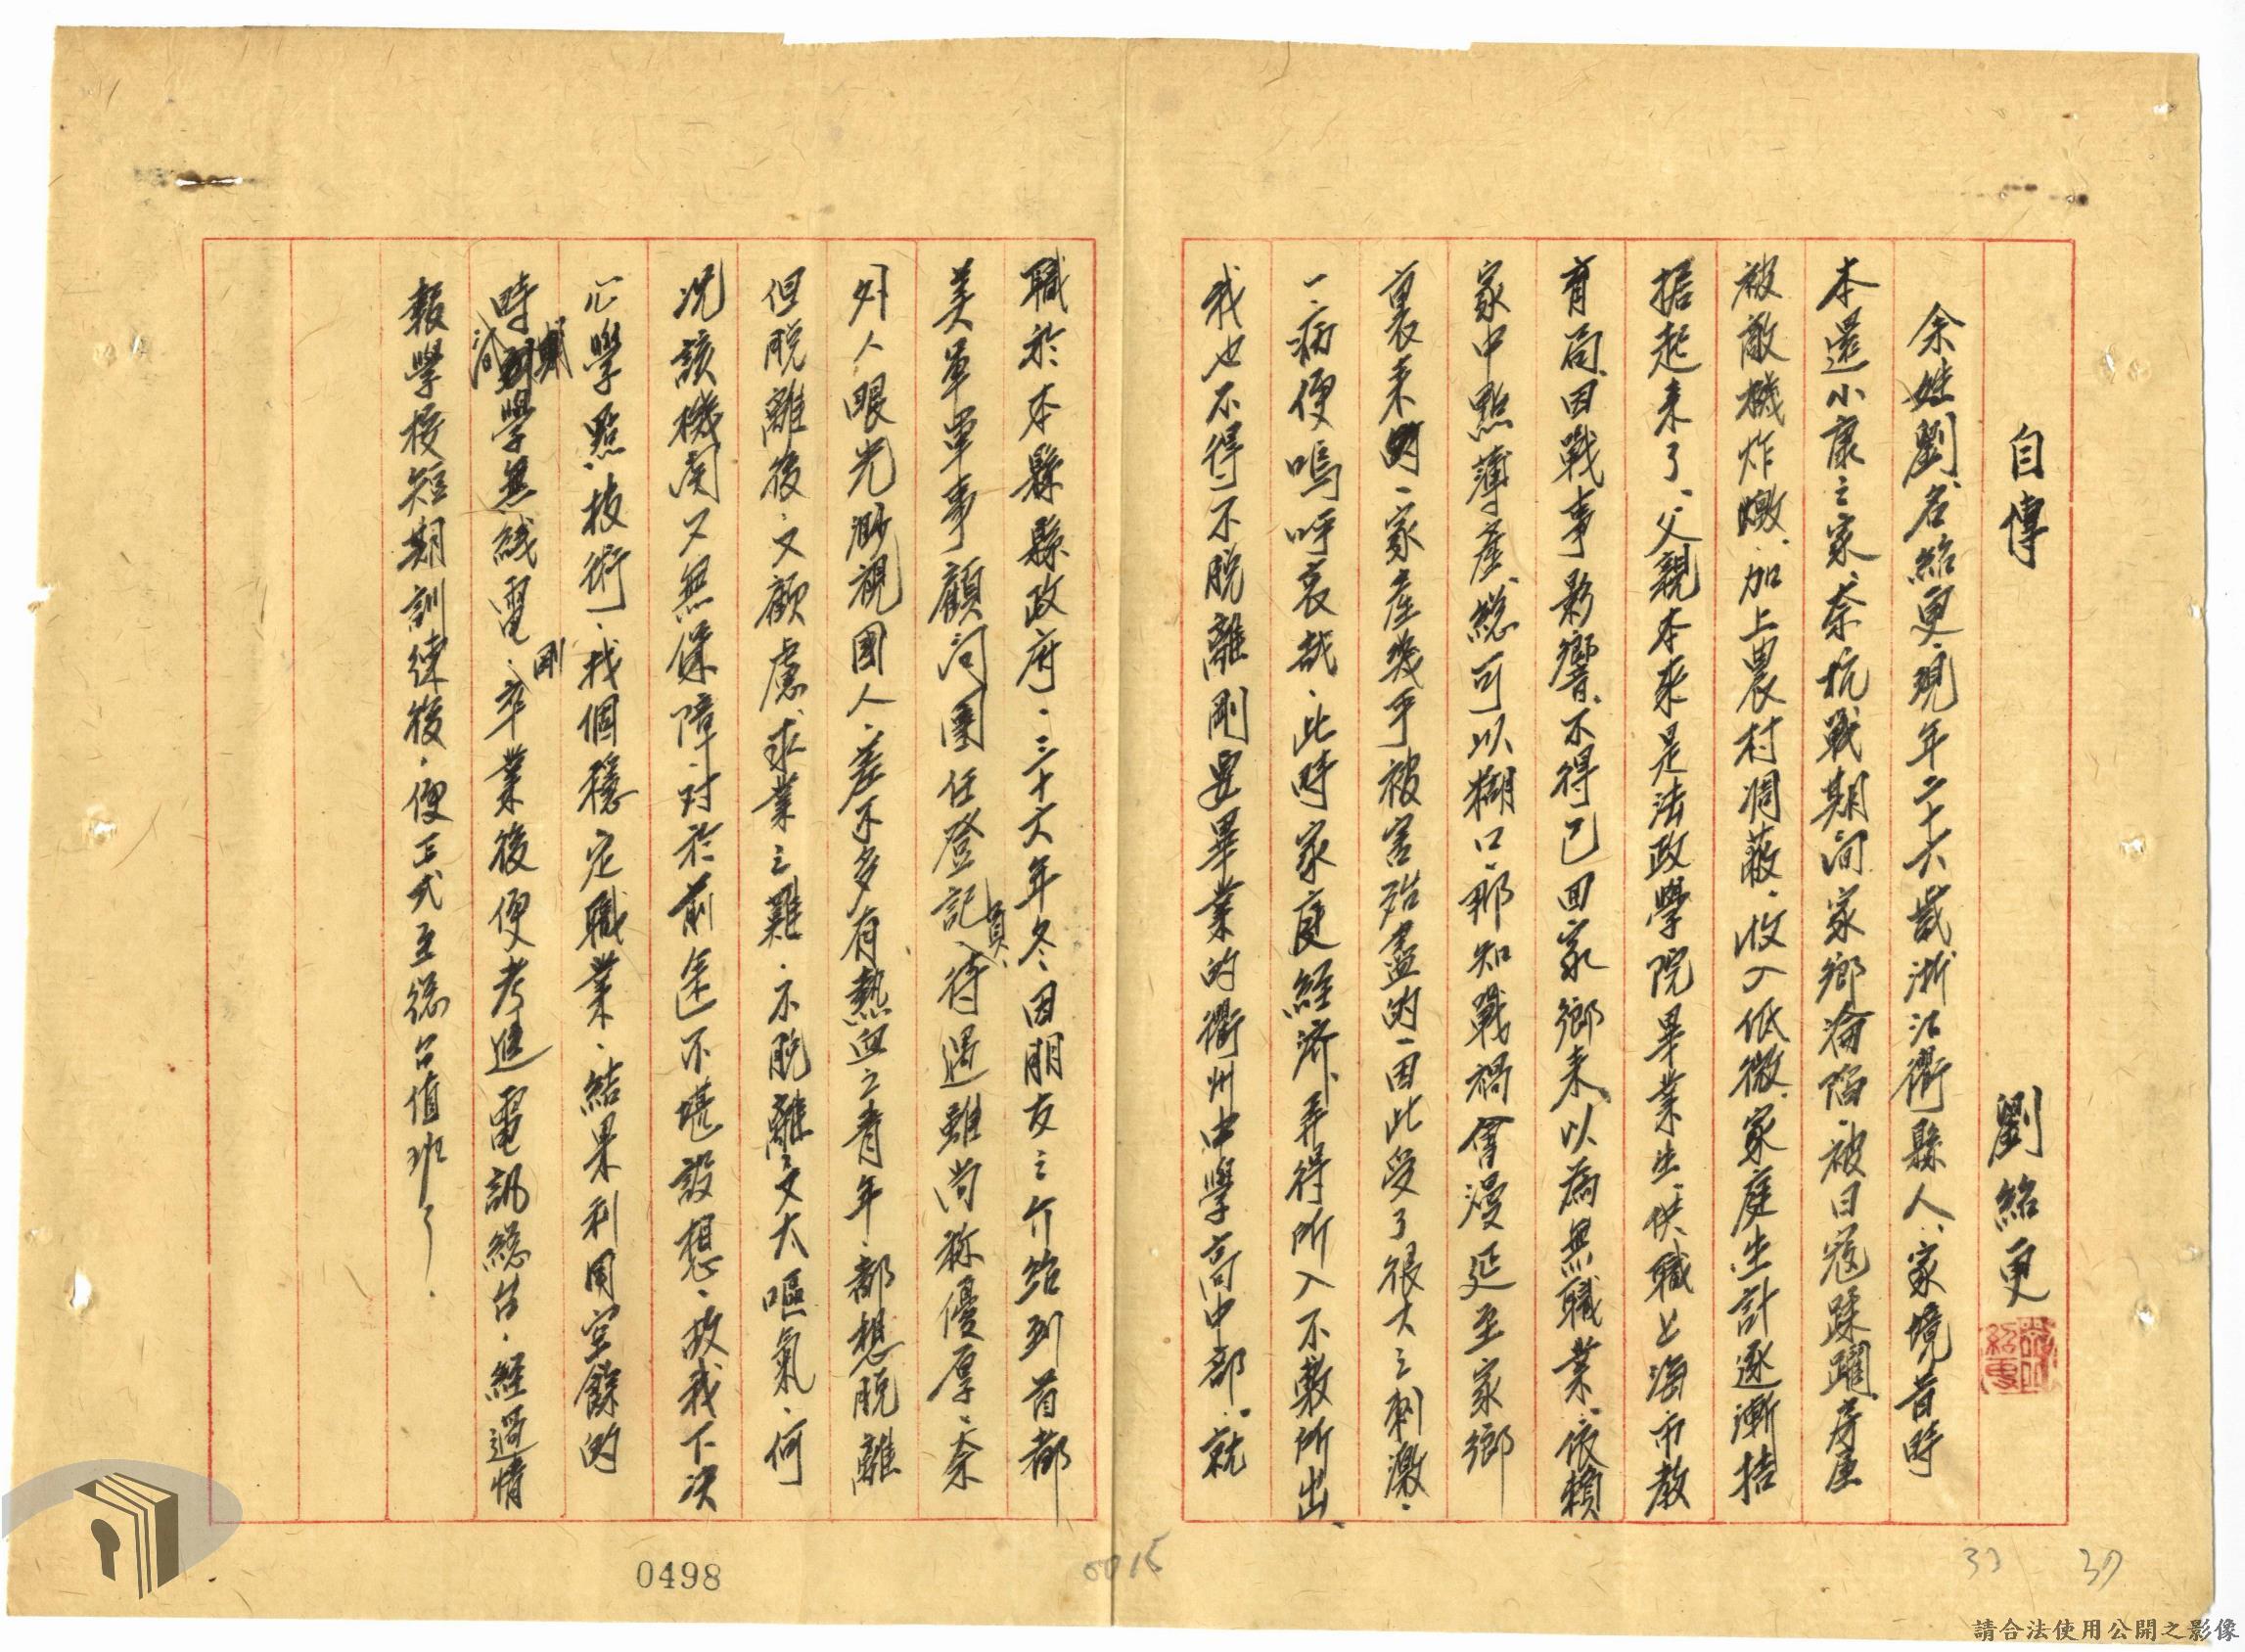 自傳　劉紹更
余姓劉、名紹更、現年二十六歲浙江衢縣人、家境昔時
本還小康之家、奈抗戰期间家鄉淪陷、被日寇蹂躝、房屋
被敵機炸燬、加上農村凋蔽、收入低微、家庭生計逐漸拮
据起來了、父親本來是法政學院畢業生、供職上海市教
育局、因戰事影響、不得已回家鄉來、以為無職業、依賴
家中點薄產、総可以糊口、那知戰禍會漫延至家鄉
裏來的、家產幾乎被害殆盡的、因此受了很大之刺激、
一病便嗚呼哀哉、此時家庭経濟、弄得所入不敷所出、
我也不得不脫離剛要畢業的衢州中學高中部、就
職於本縣縣政府、三十六年冬、因朋友之介紹到首都
美軍軍事顧问團任登記員、待遇雖尚称優厚、奈
外人眼光渺視國人、差不多有熱血之青年、都想脫離
但脫離後、又顧慮、求業之難、不脫離又太嘔氣、何
况該機関又無保障、对於前途不堪設想、故我下决
心學點技術、找個穩定職業、結果利用空餘的
時间學無綫電、剛卒業後便考進電訊総台、經過情
報學校短期訓练後、便正式至総台值班了。
0498
0015
33
37
請合法使用公開之影像